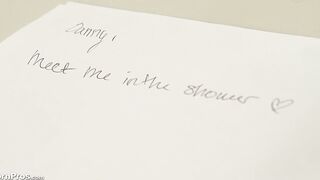 Danny,
Meet me in the shower ♡
rnPros.com